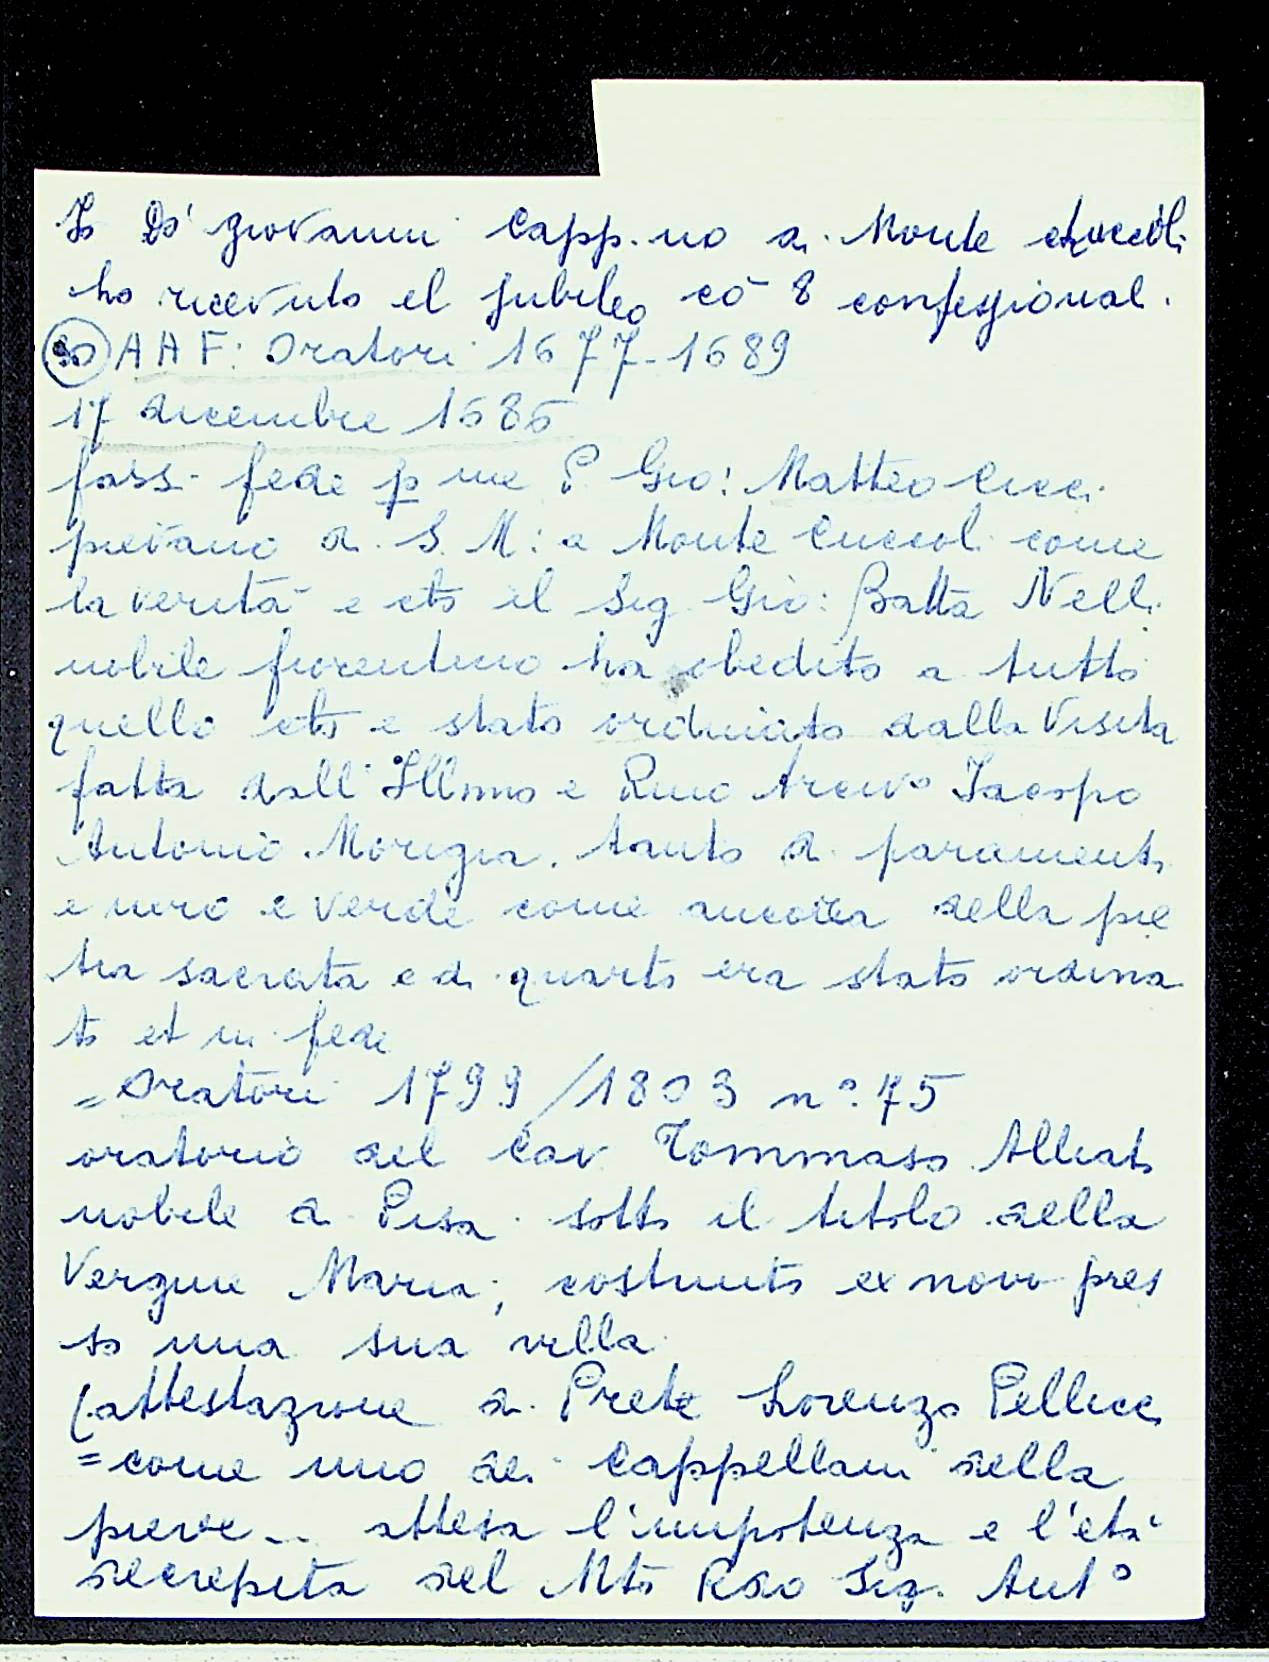 Io Dº giovanni Capp.no di Monte chuccoli
ho ricevuto el jubileo cō 8 confessional.
30 AAF: Oratori 1677-1689
17 dicembre 1686
fassi fede p me P Gio: Matteo Cicci
pievano di S. M: a Monte Cuccoli come
la verità e che il Sig. Gio: Batta Nelli
nobile fiorentino ha obedito a tutto
quello che e stato ordinato dalla Visita
fatta dall' Illmo e Rmo Arcivo Jacopo
Antonio Morigia, tanto di paramenti
e nero e verde come ancora della pie
tra sacrata e di quanto era stato ordina
to et in fede
= Oratori 1799/1803 n° 75
oratorio del Cav Tommaso Alliati
nobile di Pisa sotto il titolo della
Vergine Maria; costruito ex novo pres
so una sua villa
(attestazione di Prete Lorenzo Pellicci
= come uno dei Cappellani della
pieve... attesa l'impotenza e l'età
decrepita del Mto Rdo Sig. Ant°